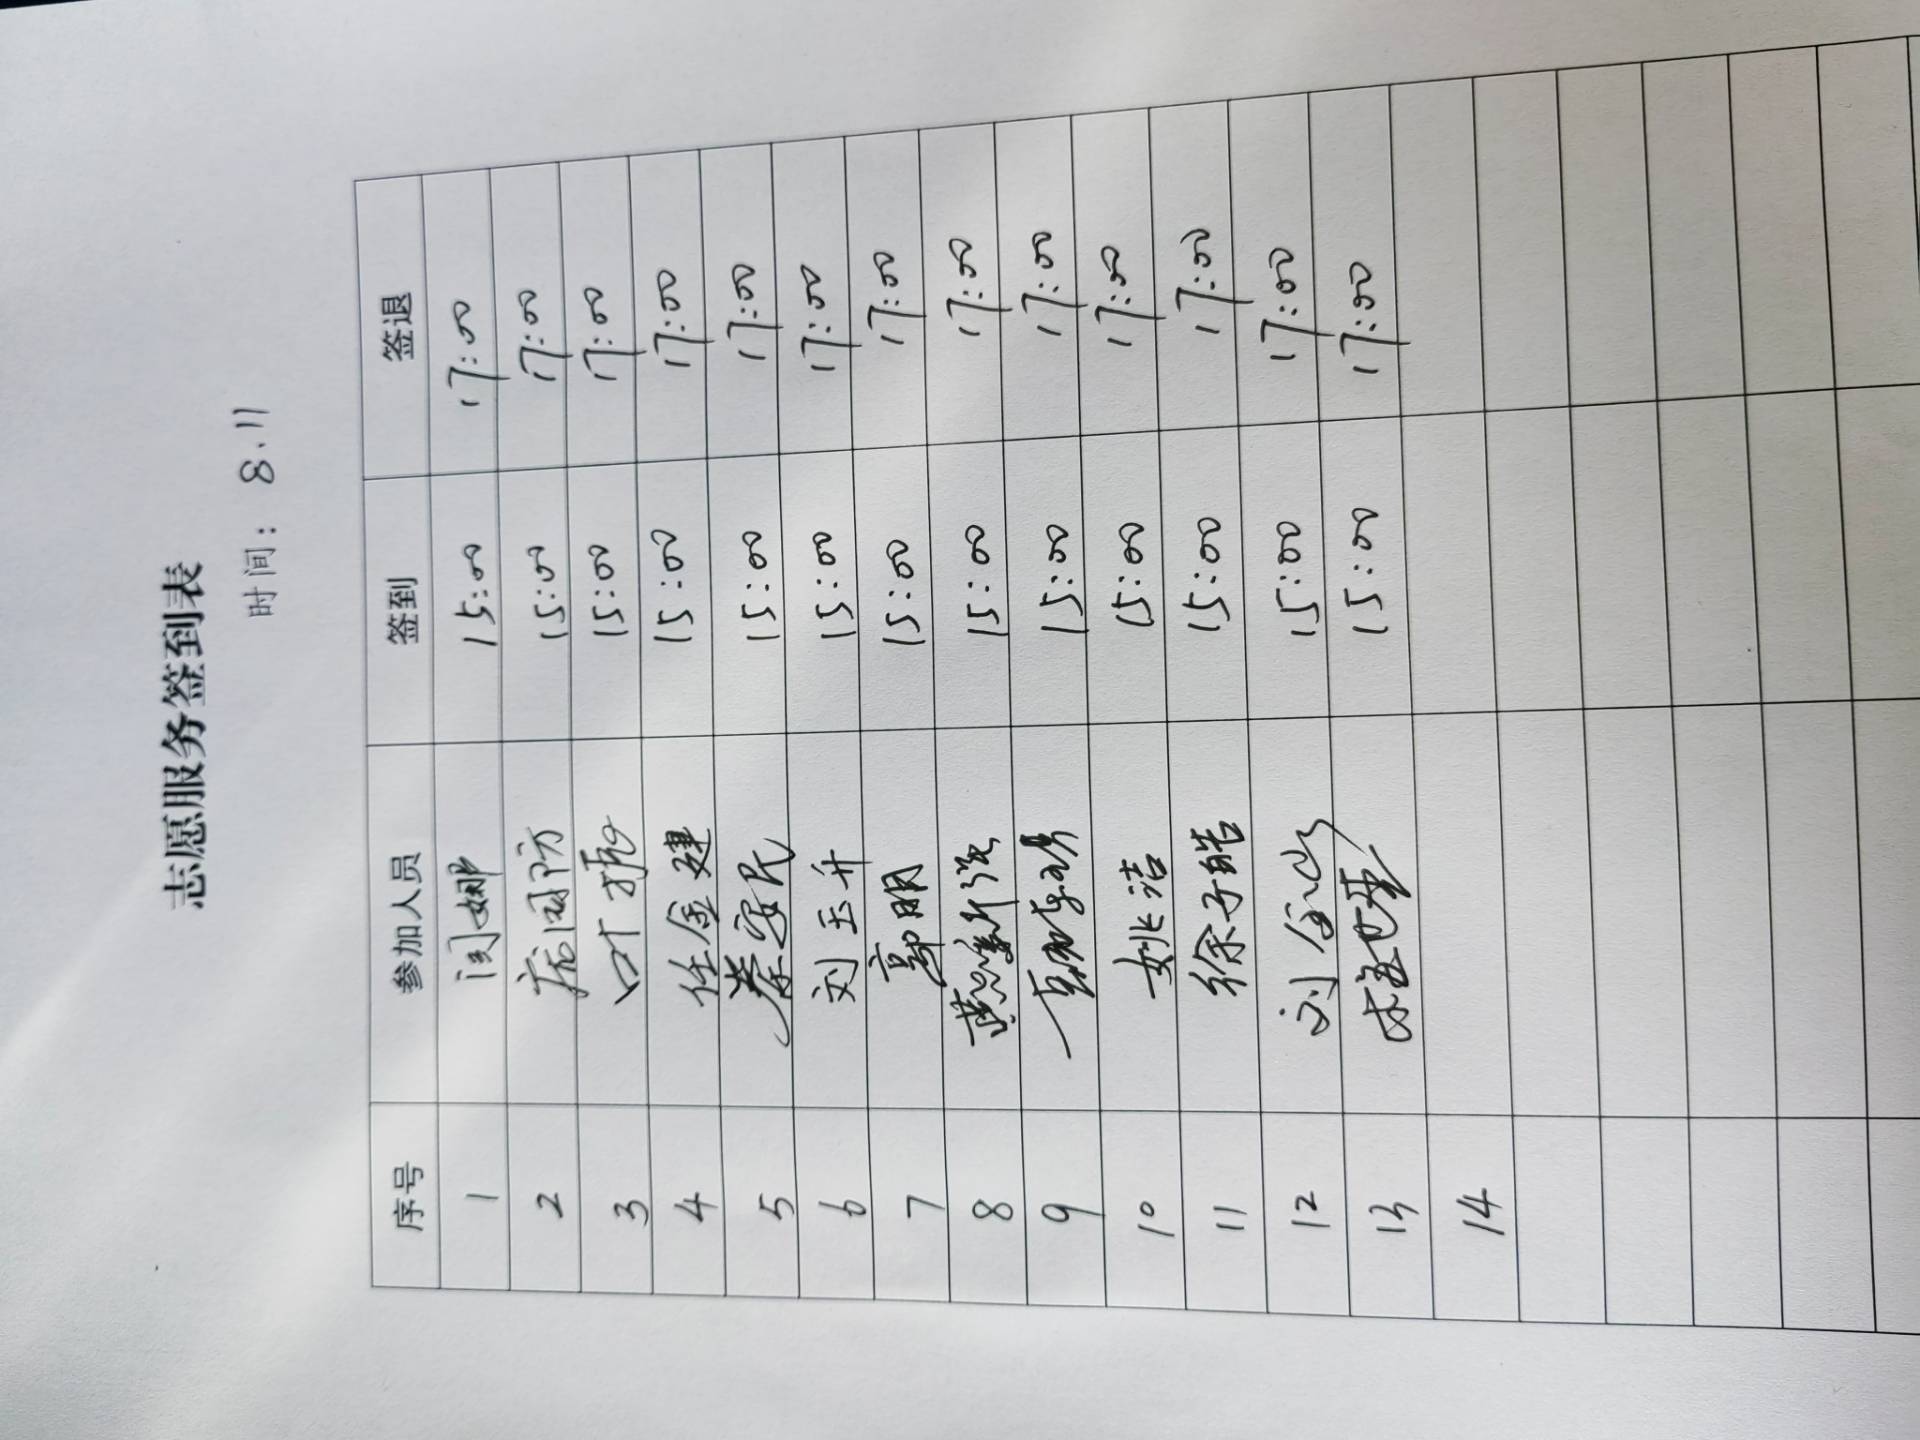 志愿服务签到表
时间: 8.11
序号 参加人员 签到 签退
1 闫娜 15:00 17:00
2 庞国防 15:00 17:00
3 叶振 15:00 17:00
4 任金建 15:00 17:00
5 秦安民 15:00 17:00
6 刘玉升 15:00 17:00
7 郭明 15:00 17:00
8 15:00 17:00
9 15:00 17:00
10 姚洁 15:00 17:00
11 徐子皓 15:00 17:00
12 刘金山 15:00 17:00
13 15:00 17:00
14